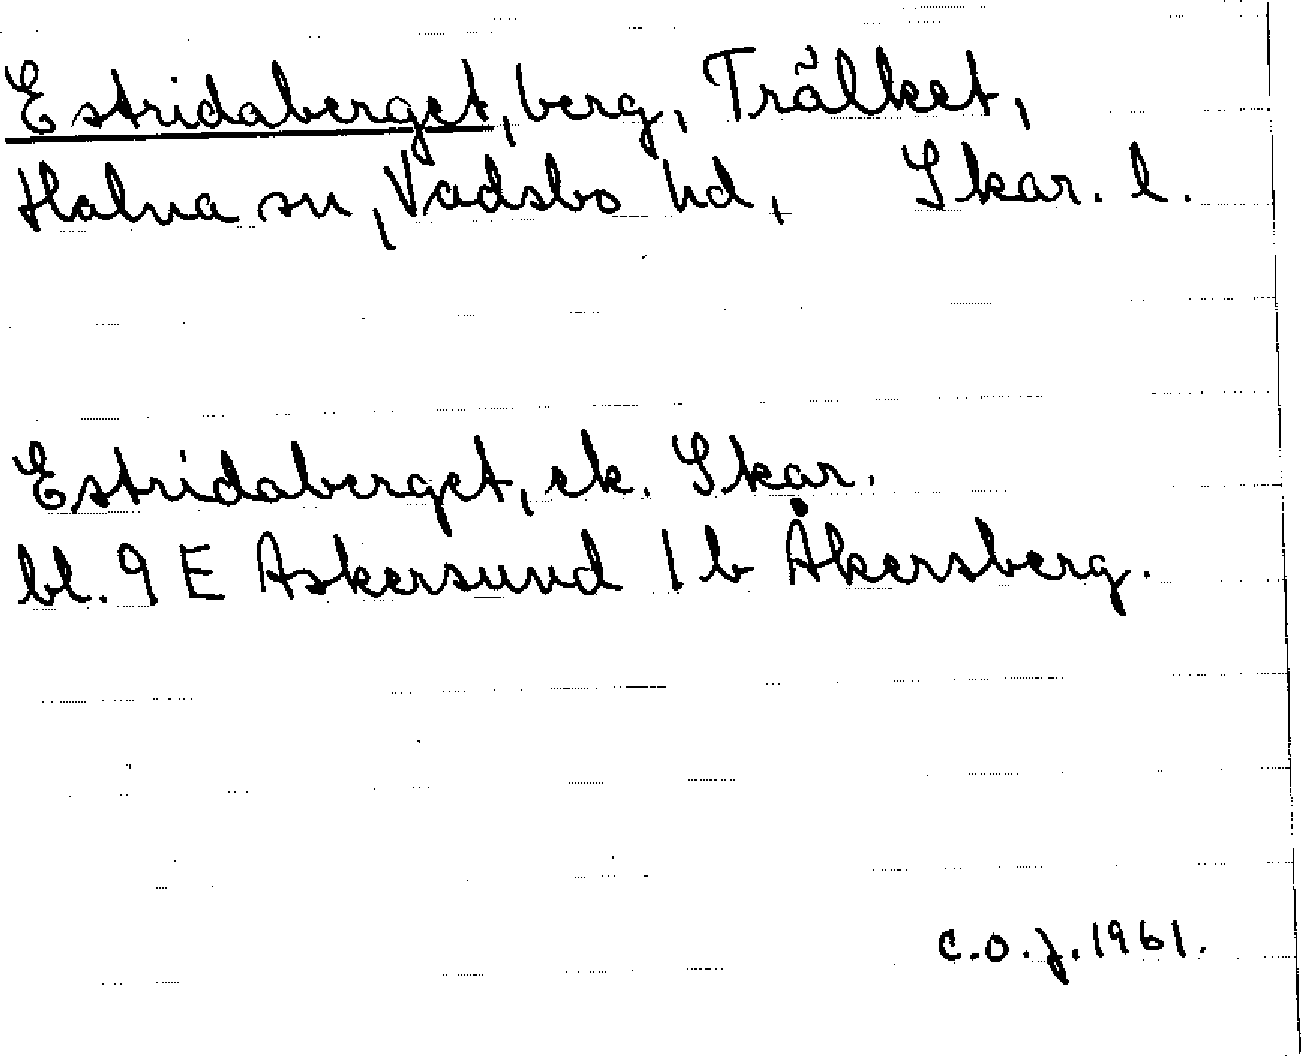 Estridaberget, berg, Trälket,
Halna sn, Vadsbo hd, Skar. l.
Estridaberget, ek. Skar.
bl. 9 E Askersund 1 b Åkersberg.
C.O.J. 1961.